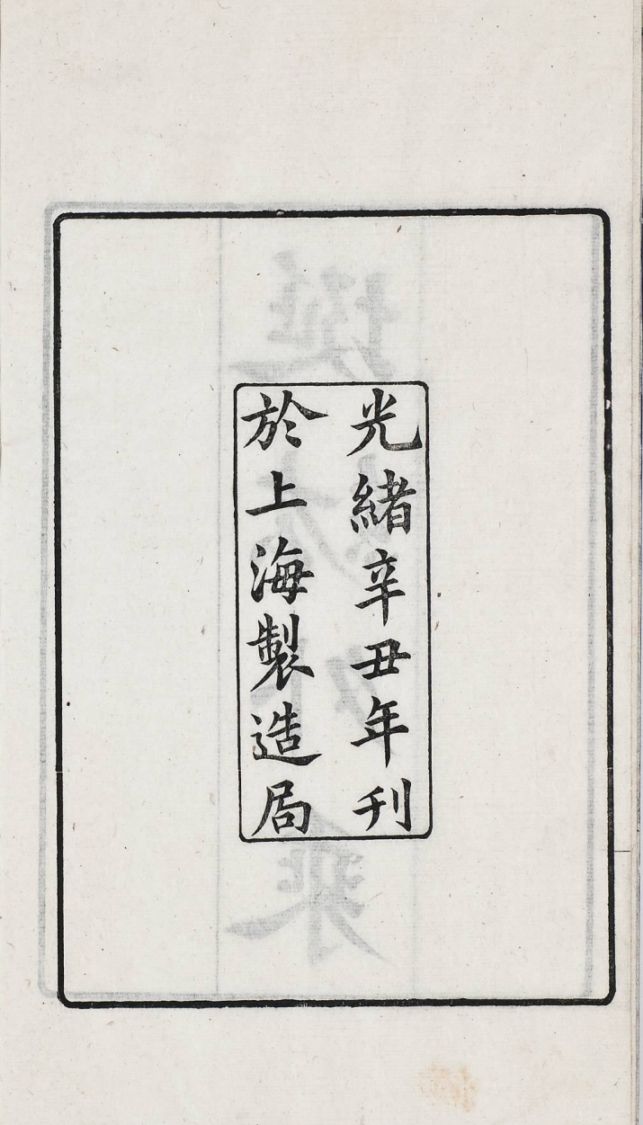 光緒辛丑年刊
於上海製造局